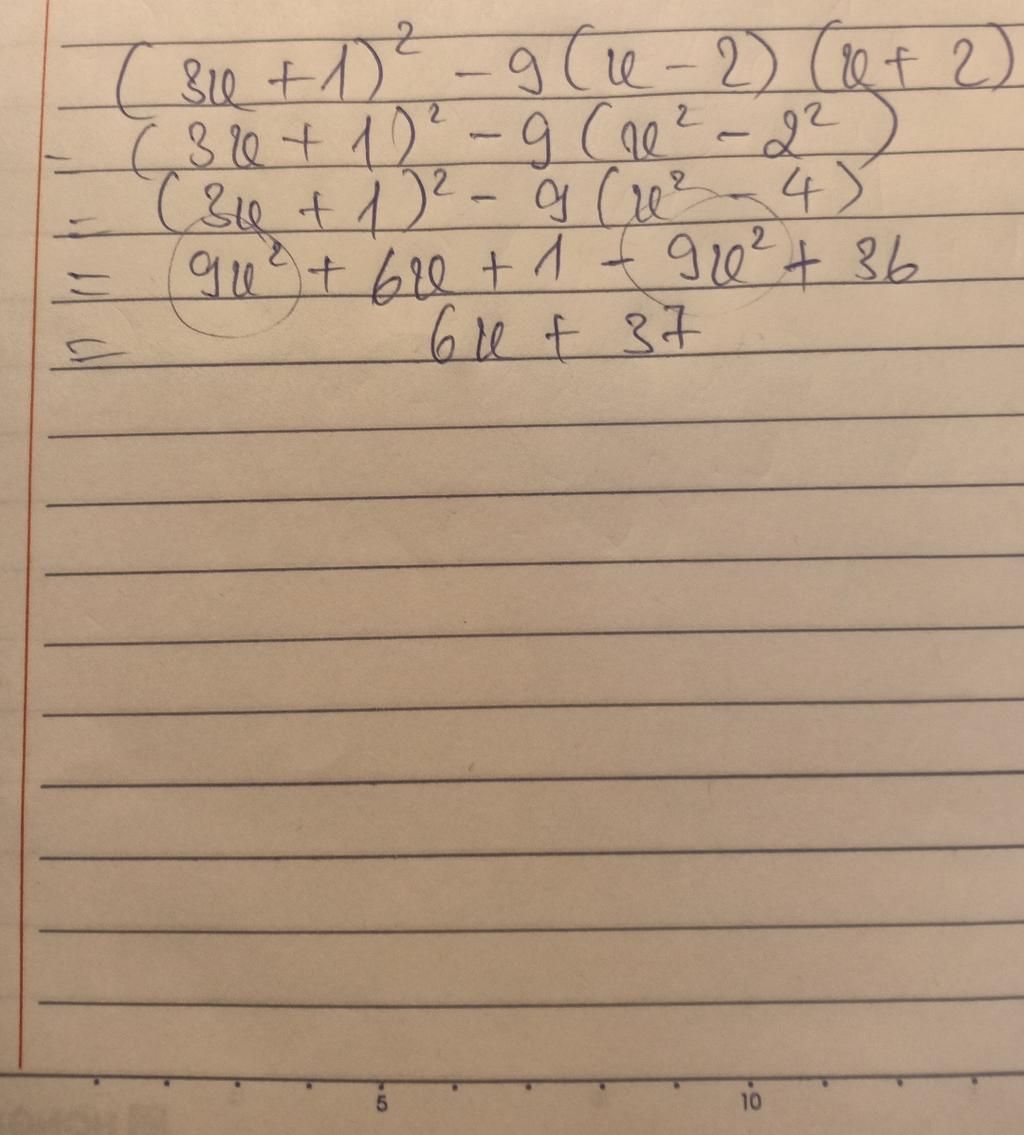 (3x + 1)² - 9(x - 2)(x + 2)
= (3x + 1)² - 9(x² - 2²)
= (3x + 1)² - 9(x² - 4)
= 9x² + 6x + 1 - 9x² + 36
= 6x + 37
5 10